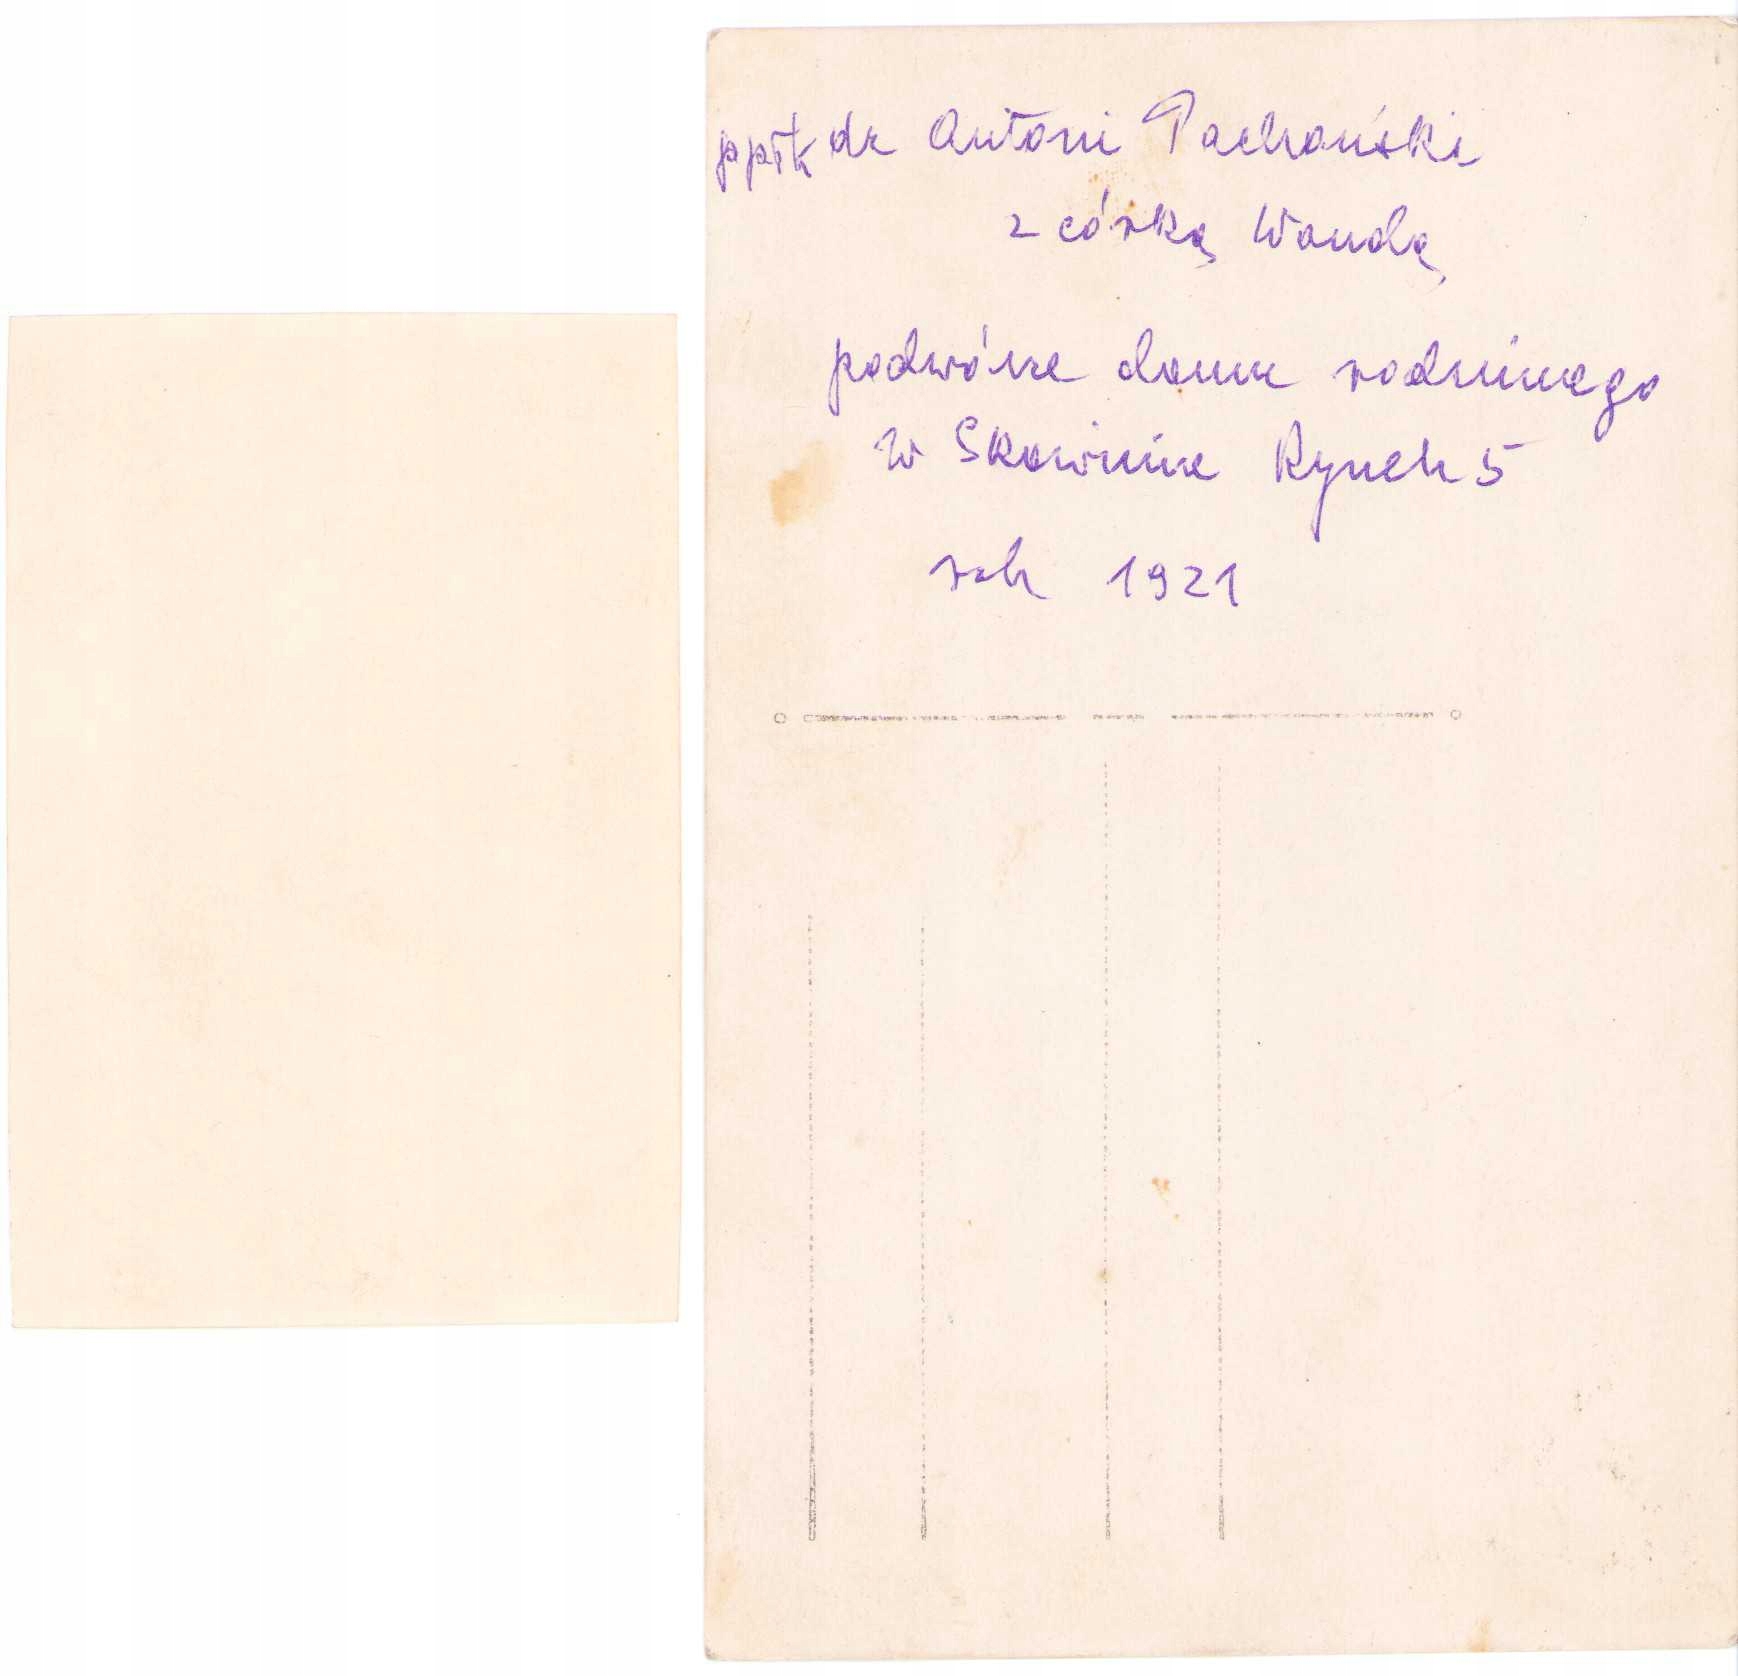 ppłk dr Antoni Pachoński
z córką Wandą
podwórze domu rodzinnego
w Skawinie Rynek 5
rok 1921